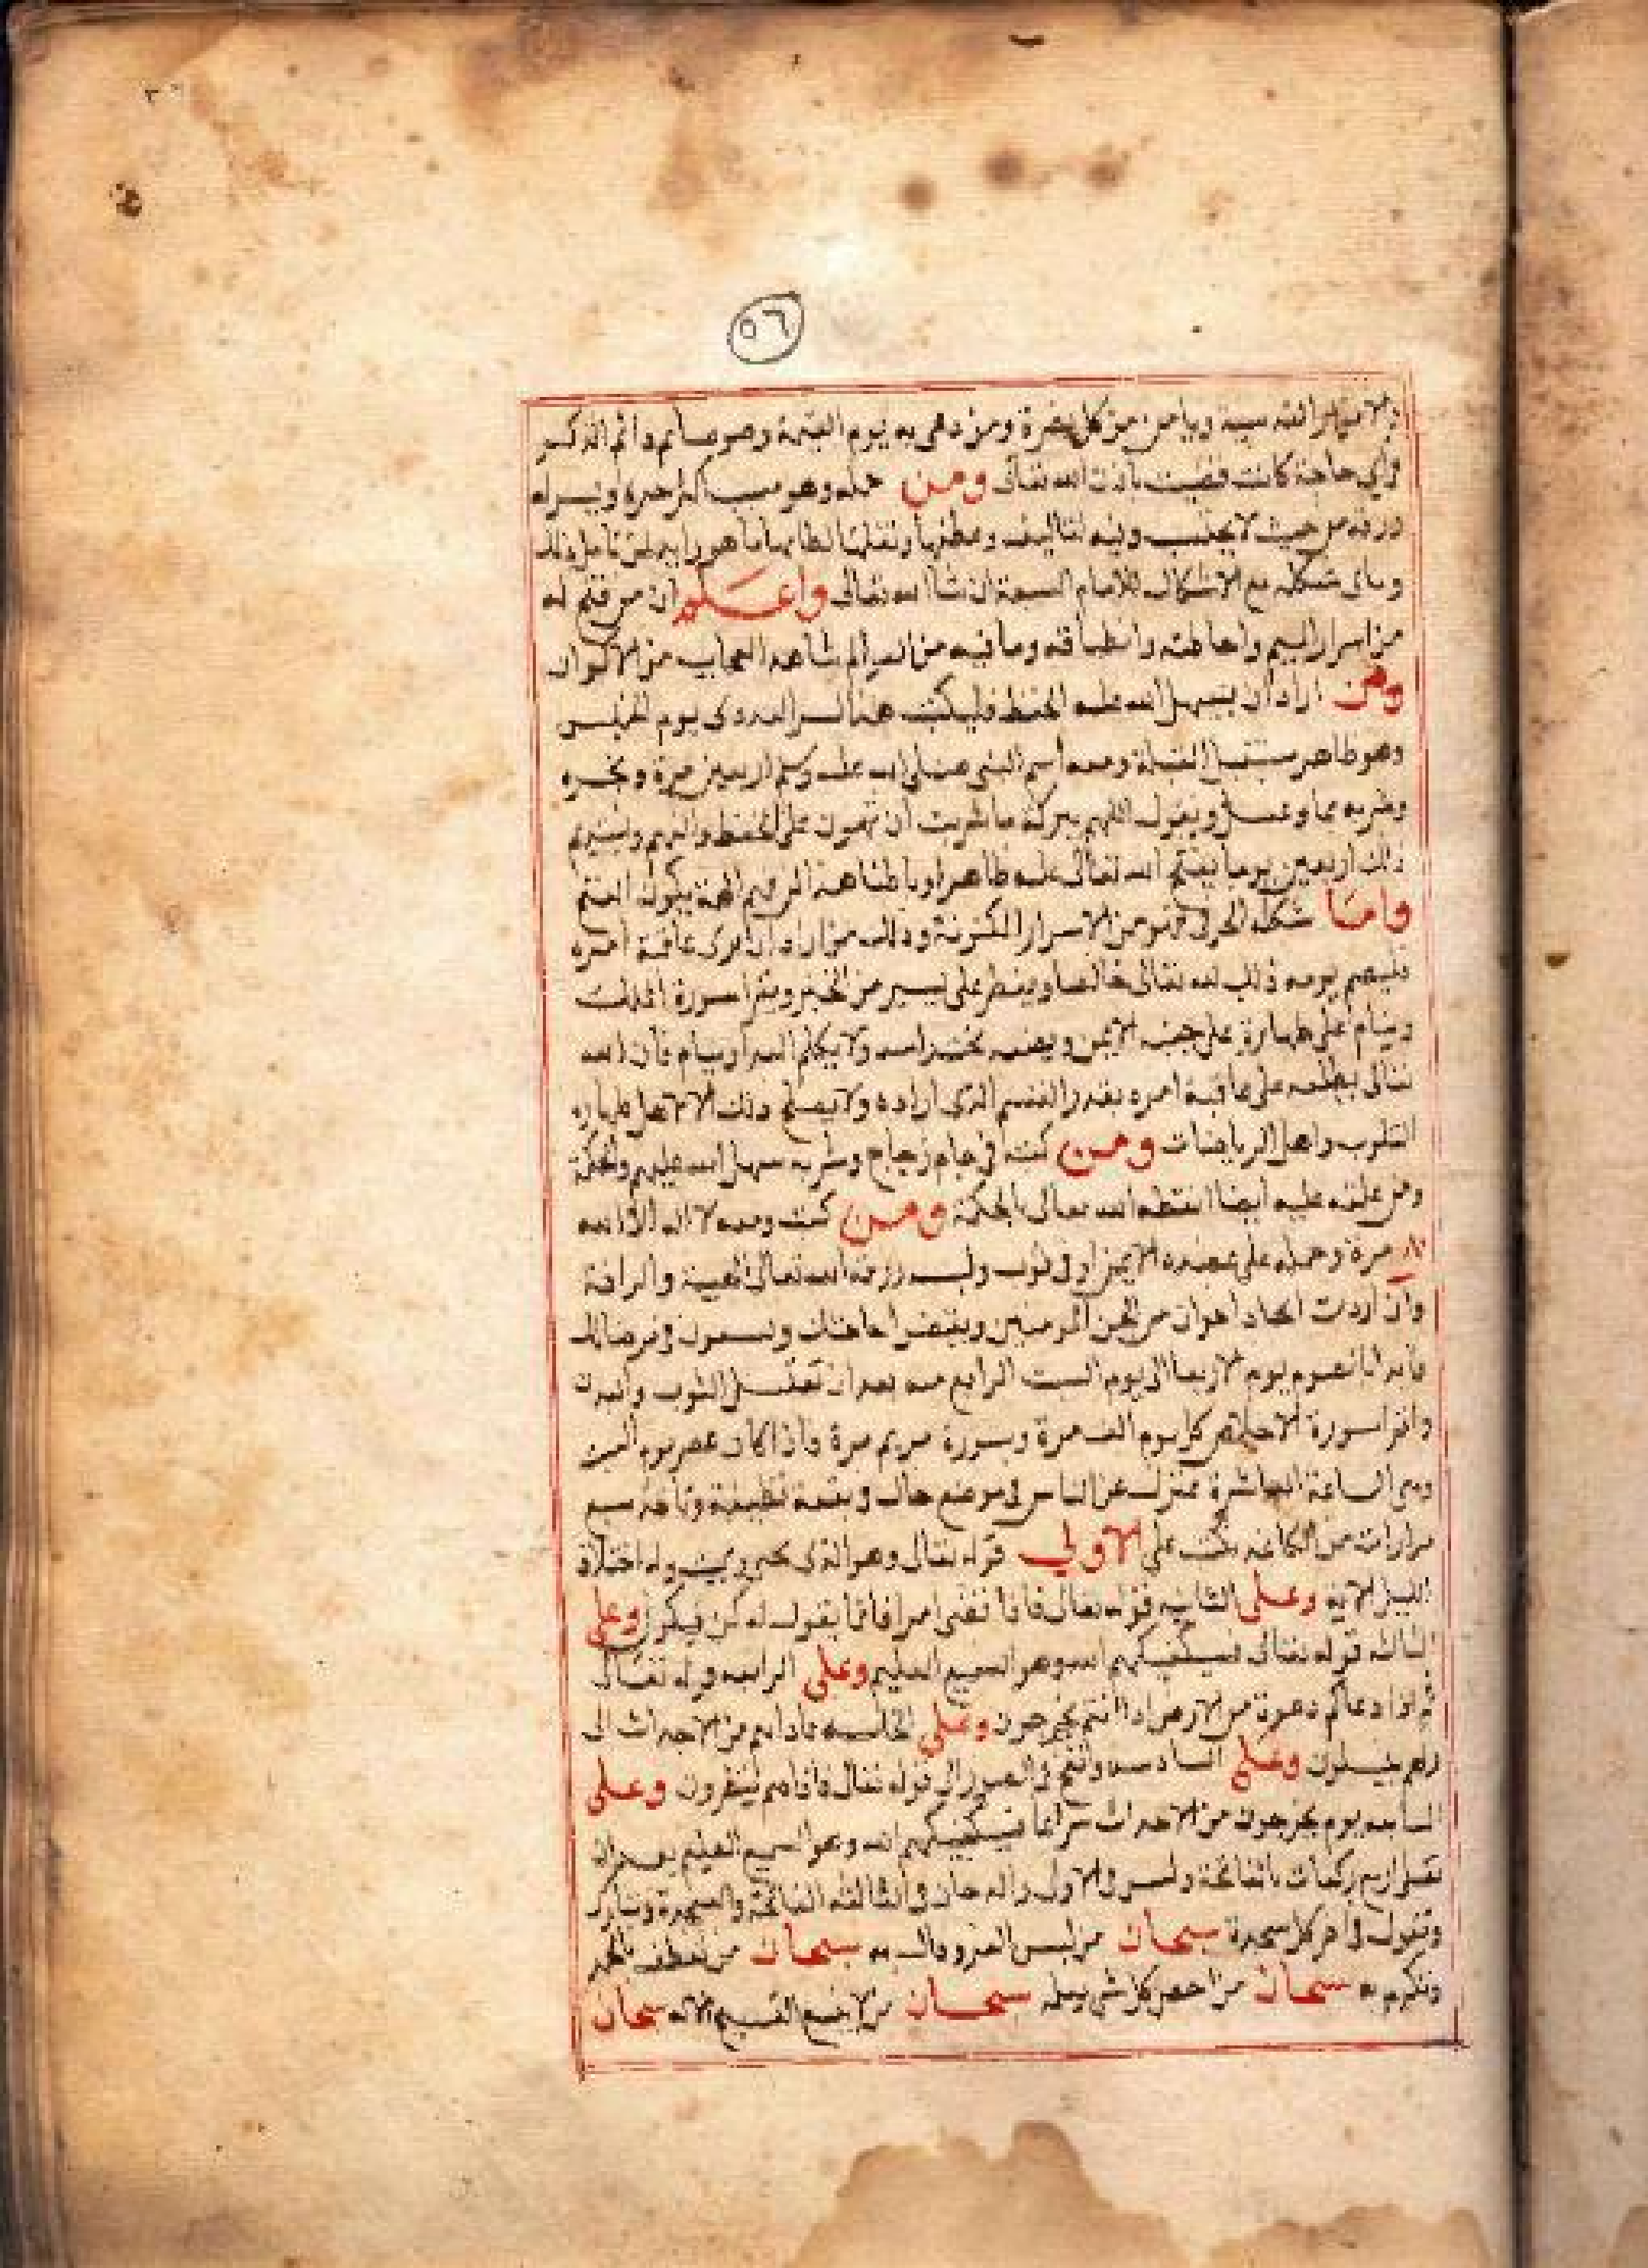 ٥٦
من كل مضرة ومن دعى به يوم القيمة وهو صايم دائم الذكر
واي حاجة كانت قضيت باذن الله تعالى ومن حمله وهو سبب اكثر خيره ويسر له
رزقه من حيث لا يحتسب وفيه
شكله مع الاشكال للايام السبعة ان شا الله تعالى واعلم ان من فتح له
من اسرار الميم واحاطته وانطباقه وما فيه من العوالم شاهد العجايب من الاكوان
ومن اراد ان يسهل الله عليه الحفظ فليكتب هذا السر العددى يوم الخميس
وهو طاهر مستقبل القبلة ومعه اسم النبى صلى الله عليه وسلم اربعين مرة وبخره
وشربه بماء وعسل ويقول اللهم ببركة ما شربت ان تهون على الحفظ والفهم
ذلك اربعين يوما يفتح الله تعالى عليه ظاهرا وباطنا
واما شكله الحرفى فهو من الاسرار المكنونة وذلك من اراد ان يرى عاقبة امره
فليصم يومه ذلك لله تعالى خالصا ويفطر على يسير من الخبز ويقرا سورة الملك
وينام على طهارة على جنبه الايمن ويضعه تحت راسه ولا يكلم احدا وينام فان الله
تعالى يطلعه على عاقبة امره بقدر القسم الذى اراده ولا يصلح ذلك الا لاهل طهارة
القلوب واهل الرياضات ومن كتبه في جام زجاج وشربه سهل الله عليه
ومن علقه عليه ايضا انطقه الله تعالى بالحكمة ومن كتبه ومعه لا اله الا الله
مرة وحمله على عضده الايمن او فى ثوب ولبسه رزقه الله تعالى الهيبة والرافة
وان اردت اتخاذ اخوان من الجن المومنين ويقضوا حاجتك ويسعون فى مرضاتك
فابدا بالصوم يوم الاربعا الى يوم السبت الرابع منه بعد ان تغسل الثوب والبدن
واقرا سورة الاخلاص كل يوم الف مرة وسورة مريم مرة واذا كان عصر يوم السبت
وهى الساعة العاشرة تنعزل عن الناس فى موضع خال وبقعة نظيفة وتاخذ سبع
من الكاغد تكتب على الاولى قوله تعالى وهو الذى يحيى ويميت وله اختلاف
الليل الاية وعلى الثانية قوله تعالى فاذا قضى امرا فانما يقول له كن فيكون وعلى
الثالثة قوله تعالى فسيكفيكهم الله وهو السميع العليم وعلى الرابعة قوله تعالى
ثم اذا دعاكم دعوة من الارض اذا انتم تخرجون وعلى الخامسة فاذا هم من الاجداث الى
ربهم ينسلون وعلى السادسة ونفخ فى الصور الى قوله تعالى فاذا هم ينظرون وعلى
السابعة يوم يخرجون من الاجداث سراعا فسيكفيكهم الله وهو السميع العليم بعد ان
تصلى اربع ركعات بالفاتحة ويس فى الاولى والدخان وفى الثالثة الفاتحة والسجدة وتبارك
وتقول فى اخر كل سجدة سبحان من لبس العز وقال به سبحان من تعطف بالمجد
وتكرم به سبحان من احصى كل شى بعلمه سبحان من لا ينبغى التسبيح الا له سبحان